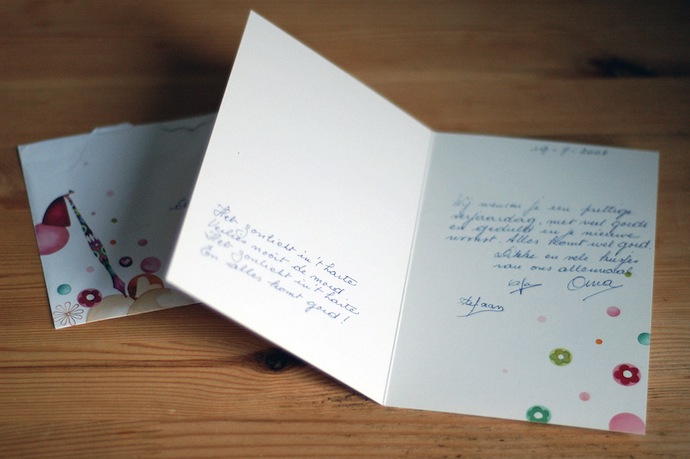 Het zonlicht in 't harte
Verlies nooit de moed
Het zonlicht in 't harte
En alles komt goed!
19-9-2008
Wij wensen je een prettige
verjaardag, met veel goeds
en geduld in je nieuwe
woonst. Alles komt wel goed
dikke en vele kusjes
van ons allemaal
Oma
Stefaan